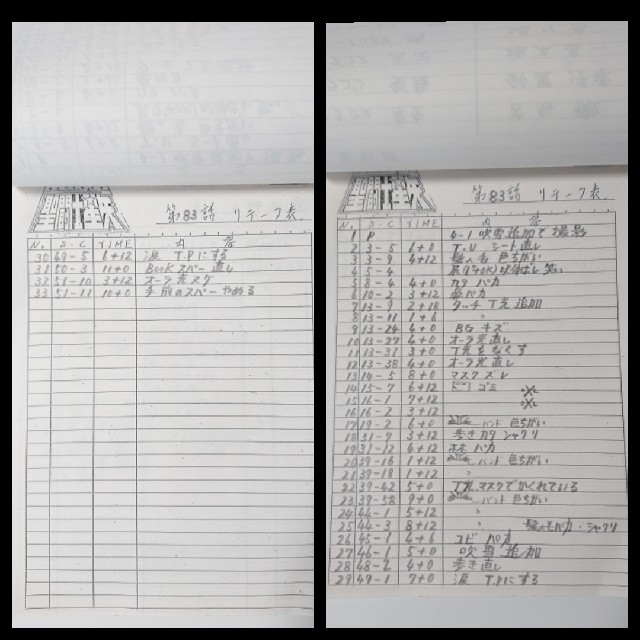 第83話 リテーク表
No. S.C TIME 内容
30 49-5 6+12 涙 T.Pにする
31 50-3 11+0 BOOKスパー直し
32 51-10 3+12 オーラ光マスク
33 51-11 10+0 手前のスパーやめる
第83話 リテーク表
No. S.C TIME 内容
1 P 4-1 吹雪追加で撮影
2 3-5 6+0 T.U シート直し
3 3-9 4+12 色ちがい
4 5-4
5 8-4 4+0 カタ パカ
6 10-2 3+12 パカ
7 13-9 2+18 タッチ T光追加
8 13-11 1+6 〃
9 13-24 4+0 BG キズ
10 13-27 4+0 オーラ光直し
11 13-31 3+0 T光をなくす
12 13-38 4+0 オーラ光直し
13 14-5 8+0 マスクズレ
14 15-7 6+12 ゴミ
15 16-1 7+12
16 16-2 3+12
17 19-2 6+0 バンド 色ちがい
18 31-7 3+12 歩きカタ シャクリ
19 31-12 4+12 パカ
20 39-16 1+12 バンド 色ちがい
21 39-18 1+12 〃
22 39-42 5+0 T光、マスクでかくれている
23 39-58 9+0 バンド 色ちがい
24 44-1 5+12 〃
25 44-3 8+12 〃 髪の毛パカ・シャクリ
26 45-1 4+6 ユビ パカ
27 46-1 5+0 吹雪追加
28 48-2 4+0 歩き直し
29 49-1 7+0 涙 T.Pにする